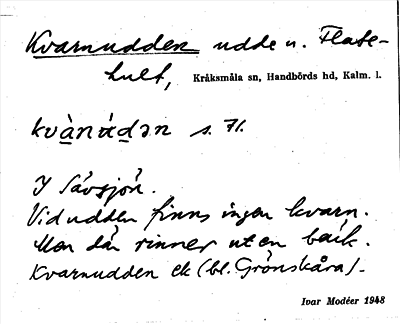 Kvarnudden udde u. Flate-
hult,
Kråksmåla sn, Handbörds hd, Kalm. l.
kvànádən s. 71.
I Sävsjön.
Vid udden finns ingen kvarn.
Men där rinner ut en bäck.
Kvarnudden ek (bl. Grönskåra).
Ivar Modéer 1948